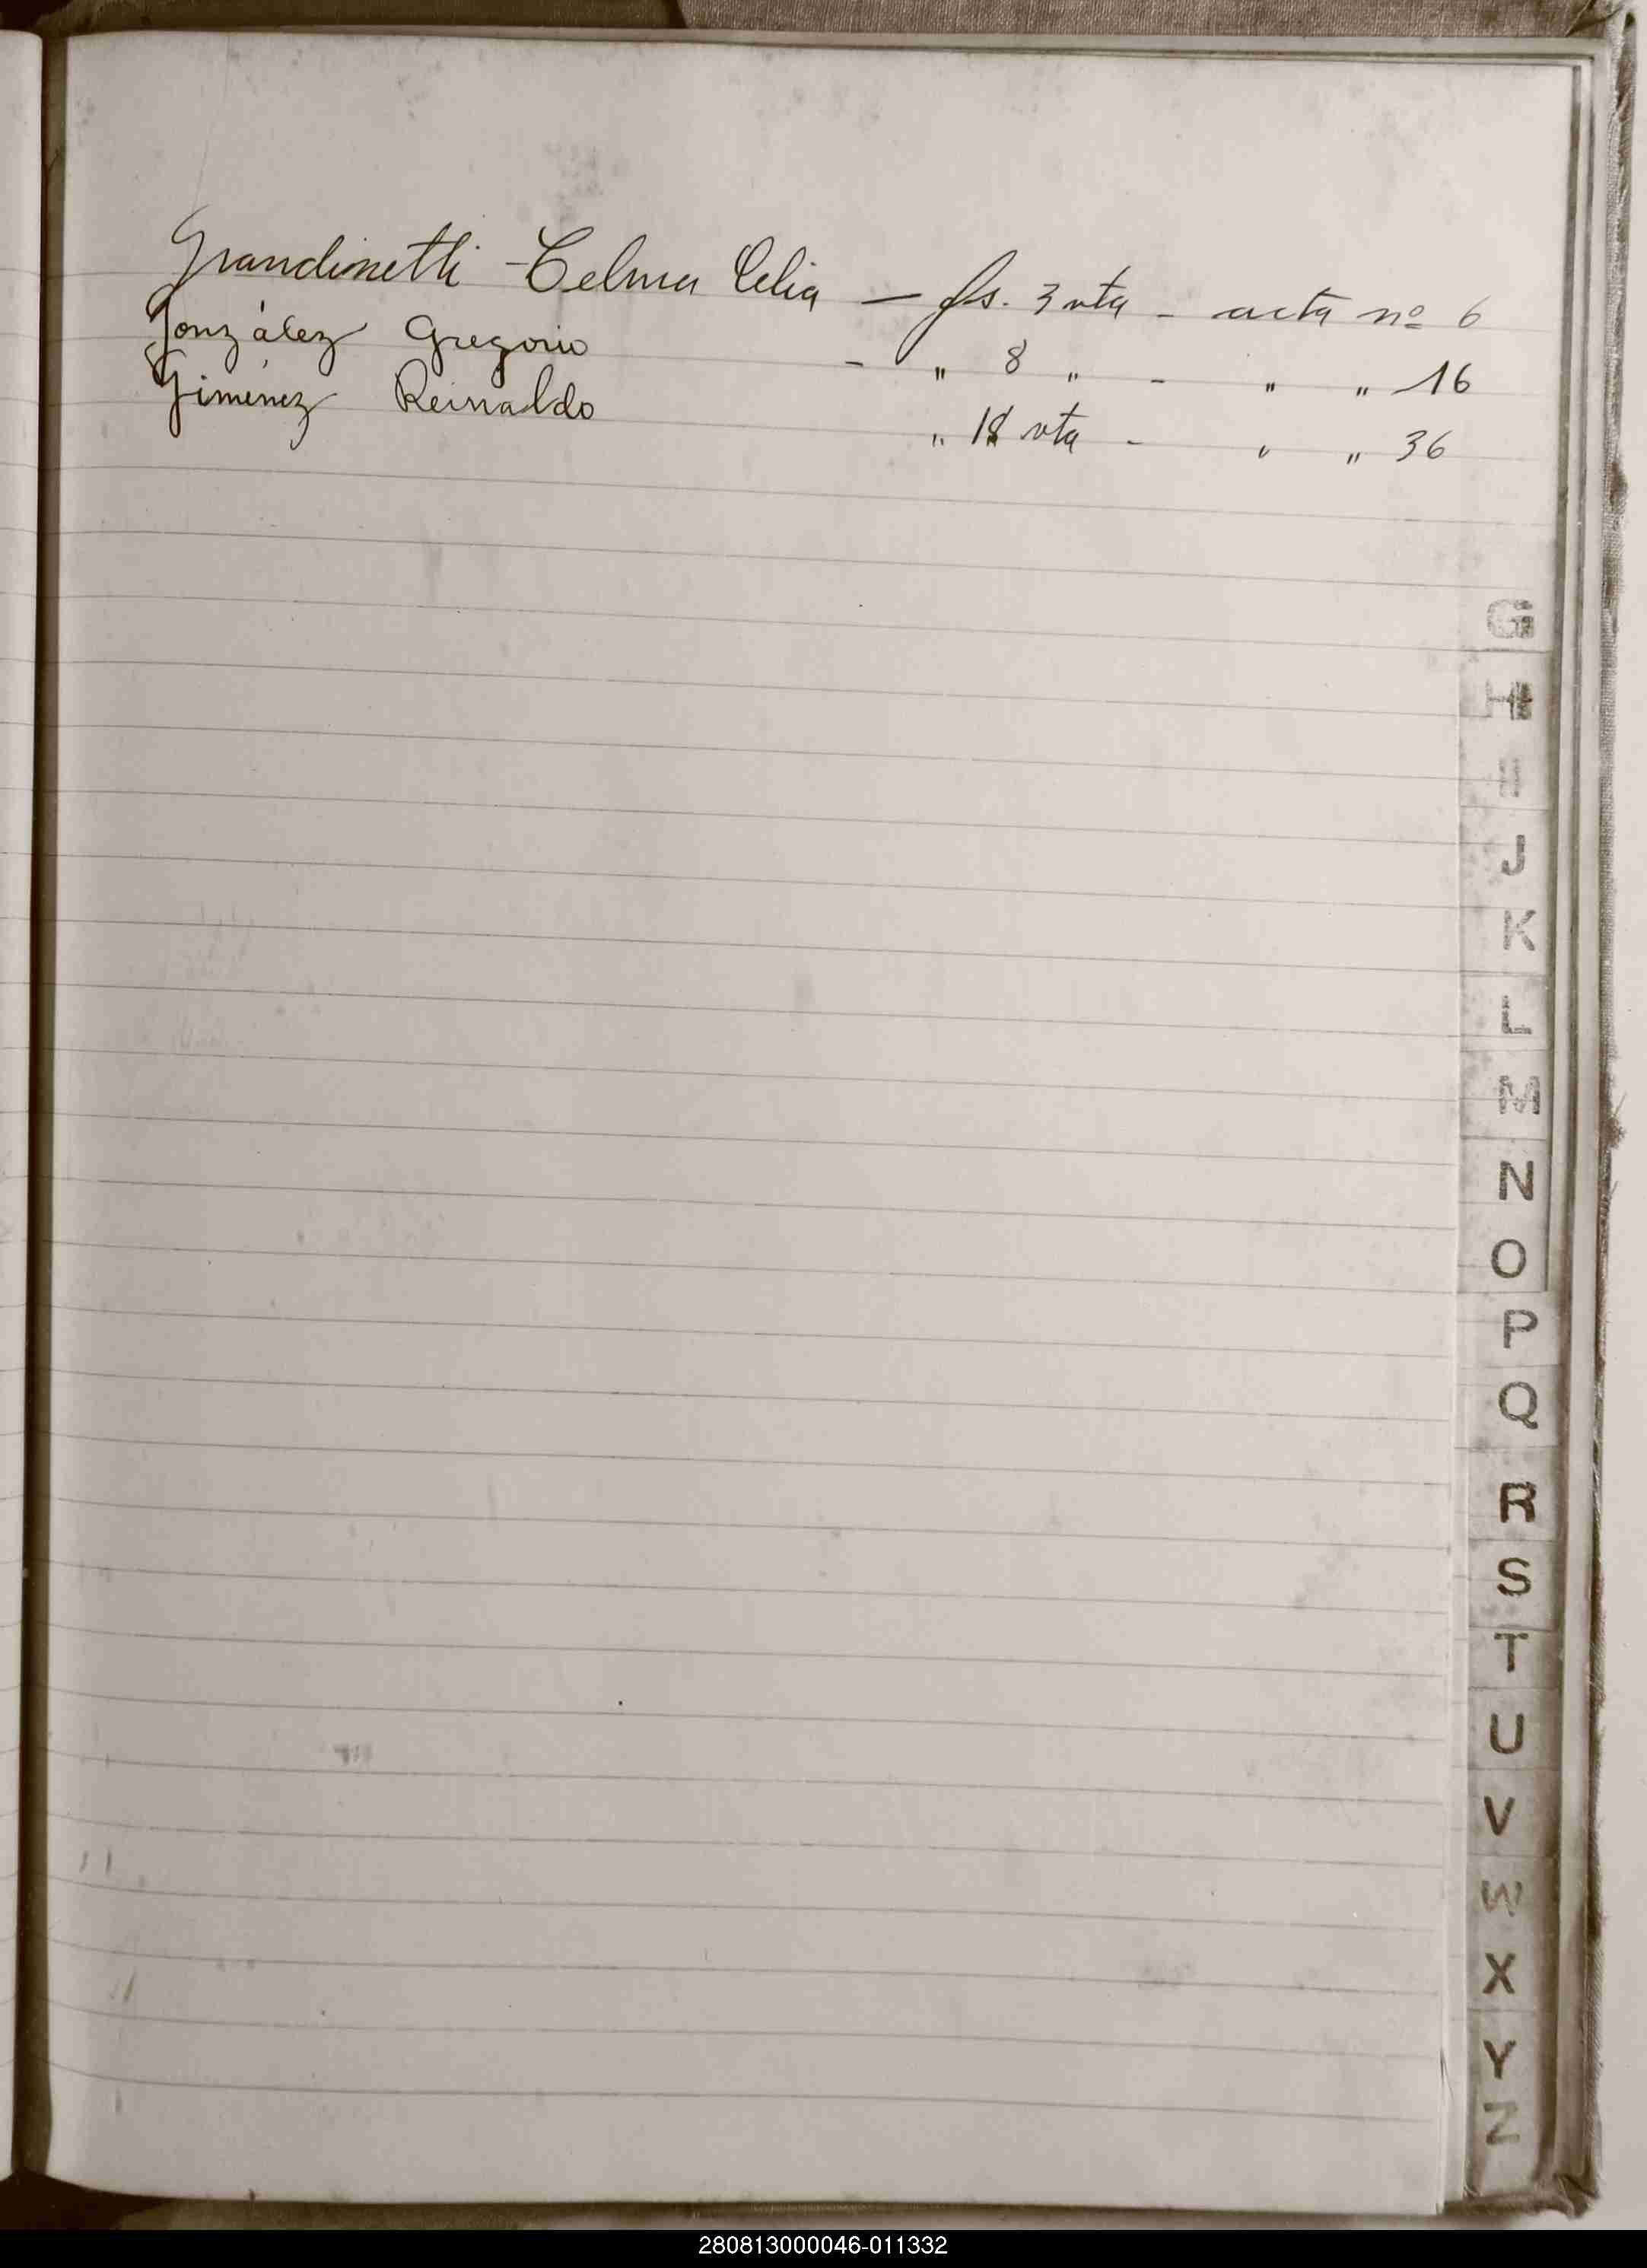 Grandinetti - Celma Celia — fs. 3 vta - acta nº 6
González Gregorio - " 8 " - " " 16
Giménez Reinaldo " 18 vta - " " 36
G
H
I
J
K
L
M
N
O
P
Q
R
S
T
U
V
W
X
Y
Z
280813000046-011332